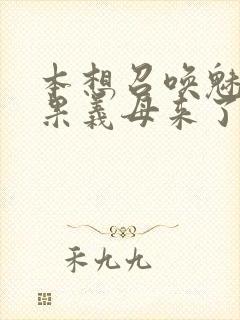 本想召唤魅
果义母来了
禾九九